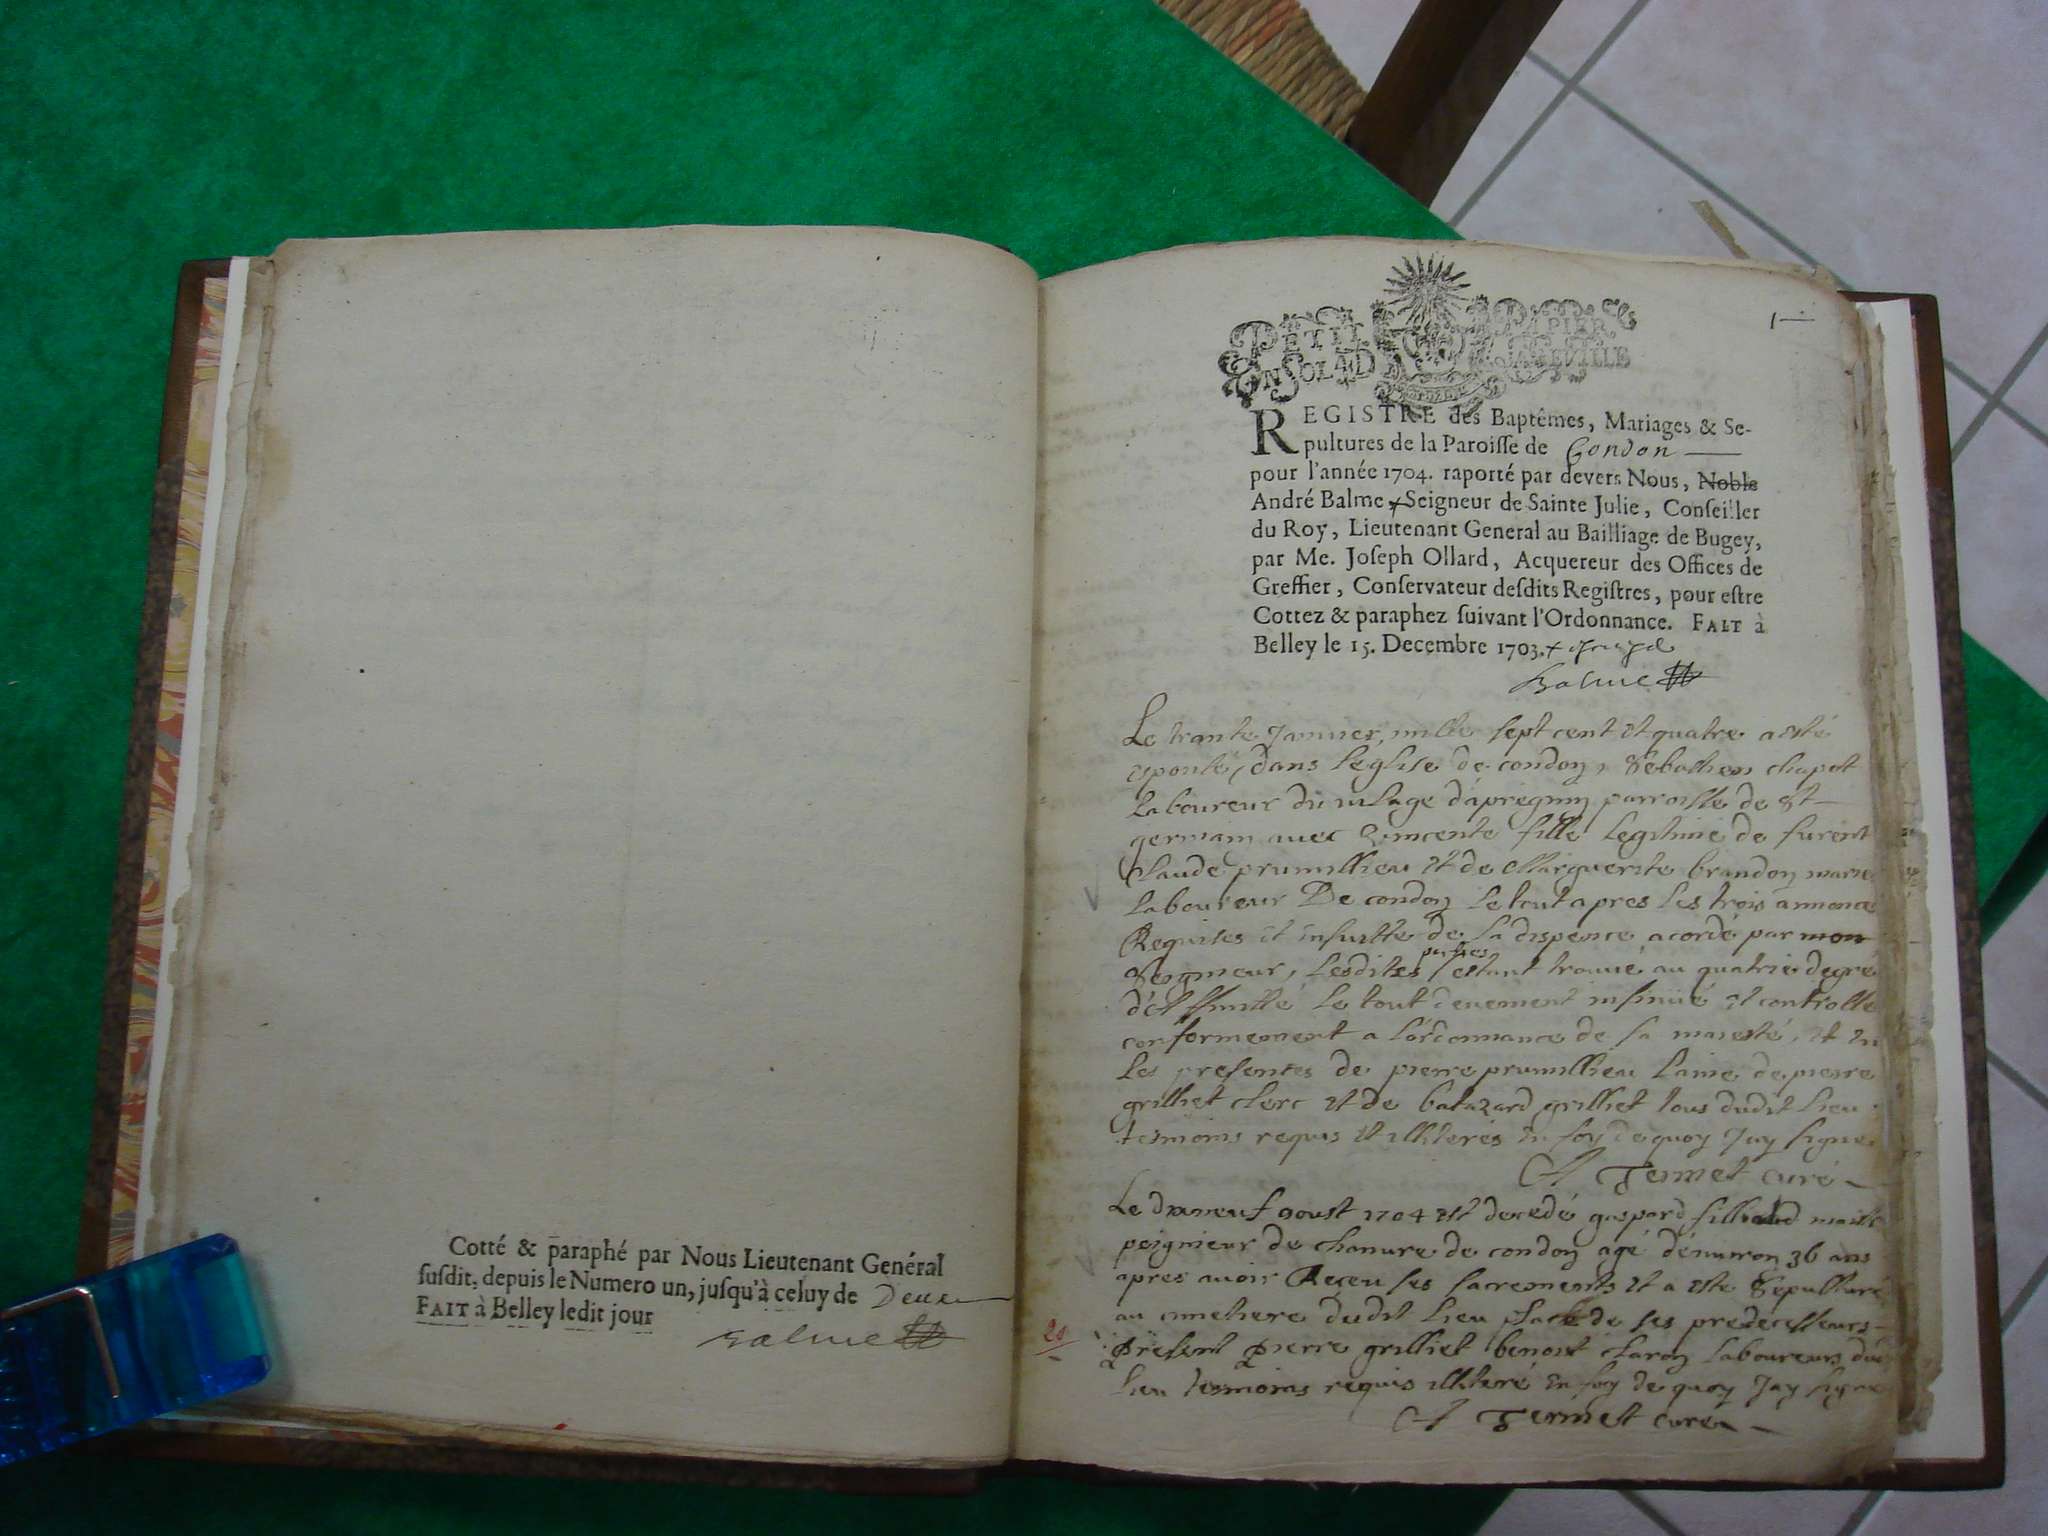 Cotté & paraphé par Nous Lieutenant Genéral
susdit, depuis le Numero un, jusqu'à celuy de Deux
FAIT à Belley ledit jour
Balme
1
PETIT PAPIER
EN SOLD LA FEVILLE
REGISTRE des Baptêmes, Mariages & Se-
pultures de la Paroisse de Condon
pour l'année 1704. raporté par devers Nous, Noble
André Balme + Seigneur de Sainte Julie, Conseiller
du Roy, Lieutenant General au Bailliage de Bugey,
par Me. Joseph Ollard, Acquereur des Offices de
Greffier, Conservateur desdits Registres, pour estre
Cottez & paraphez suivant l'Ordonnance. FAIT à
Belley le 15. Decembre 1703. +
Balme
Le trante Janvier, mille sept cent et quatre a esté
espousé, dans leglise de condon, Sebastien chapot
laboureur du vilage d'apregnin parroisse de St
germain avec vincente fille legitime de furent
Claude prumillieu et de Marguerite brandon
laboureur De condon le tout apres les trois annonce
Requises et insuitte de la dispence acordé par mon
Seigneur, lesdites parties estant trouvé au quatrie degré
le tout deuement insinué et controllé
conformement a lordonnance de sa maiesté, et en
les presentes de pierre prumillieu laine de pierre
grilliet clerc et de batazard grilliet tous dudit lieu
tesmoins requis et illiterés en foy de quoy Jay signe
A Termet curé
Le dixneuf aoust 1704 est decedé gaspard filliod
peignieur de chanvre de condon agé d'environ 36 ans
apres avoir Receu ses sacrements et a esté Sepulturé
au cimetiere dudit lieu place de ses predecesseurs
20
Present Pierre grilliet benoit claron laboureurs dud
lieu tesmoins requis illiteré en foy de quoy Jay signé
A Termet curé